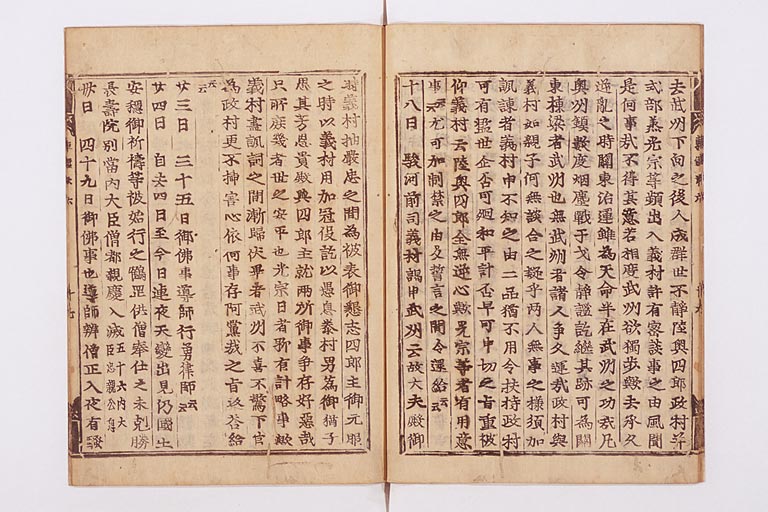 去武州下向之後人成群世不静陸奥四郎政村并
式部丞光宗等頻出入義村許有密談事之由風聞
是何事哉不得其意若相度武州欲獨歩歟去承久
逆亂之時關東治運雖爲天命半在武州之功哉凡
奥州鎮數度烟塵戰干戈令靜謐訖繼其跡可爲關
東棟梁者武州也無武州者諸人争久運哉政村與
義村如親子何無談合之疑乎兩人無事之様須加
諷諫者義村申不知之由二品猶不用令扶持政村
可有濫世企否可廻和平計否早可申切之旨重被
仰義村云陸奥四郎全無逆心歟光宗等者有用意
事云云尤可加制禁之由及誓言之間令還給云云
十八日　駿河前司義村謁申武州云故大夫殿御
時義村抽微忠之間爲被表御懇志四郎主御元服
之時以義村用加冠役訖以愚息泰村男爲御猶子
思其芳恩貴殿與四郎主就兩所御事爭存好惡哉
只所庶幾者世之安平也光宗日者聊有計略事歟
義村盡諷詞之間漸歸伏畢者武州不喜不驚下官
爲政村更不挿害心依何事存阿黨哉之旨返答給
云云
廿三日　三十五日御佛事導師行勇律師云云
廿四日　自去四日至今日連夜天變出見仍國土
安穏御祈禱等被始行之鶴岡供僧奉仕之未剋勝
長壽院別當内大臣僧都親慶入滅五十六内大臣忠親公息
卅日　四十九日御佛事也導師辨僧正入夜有騒